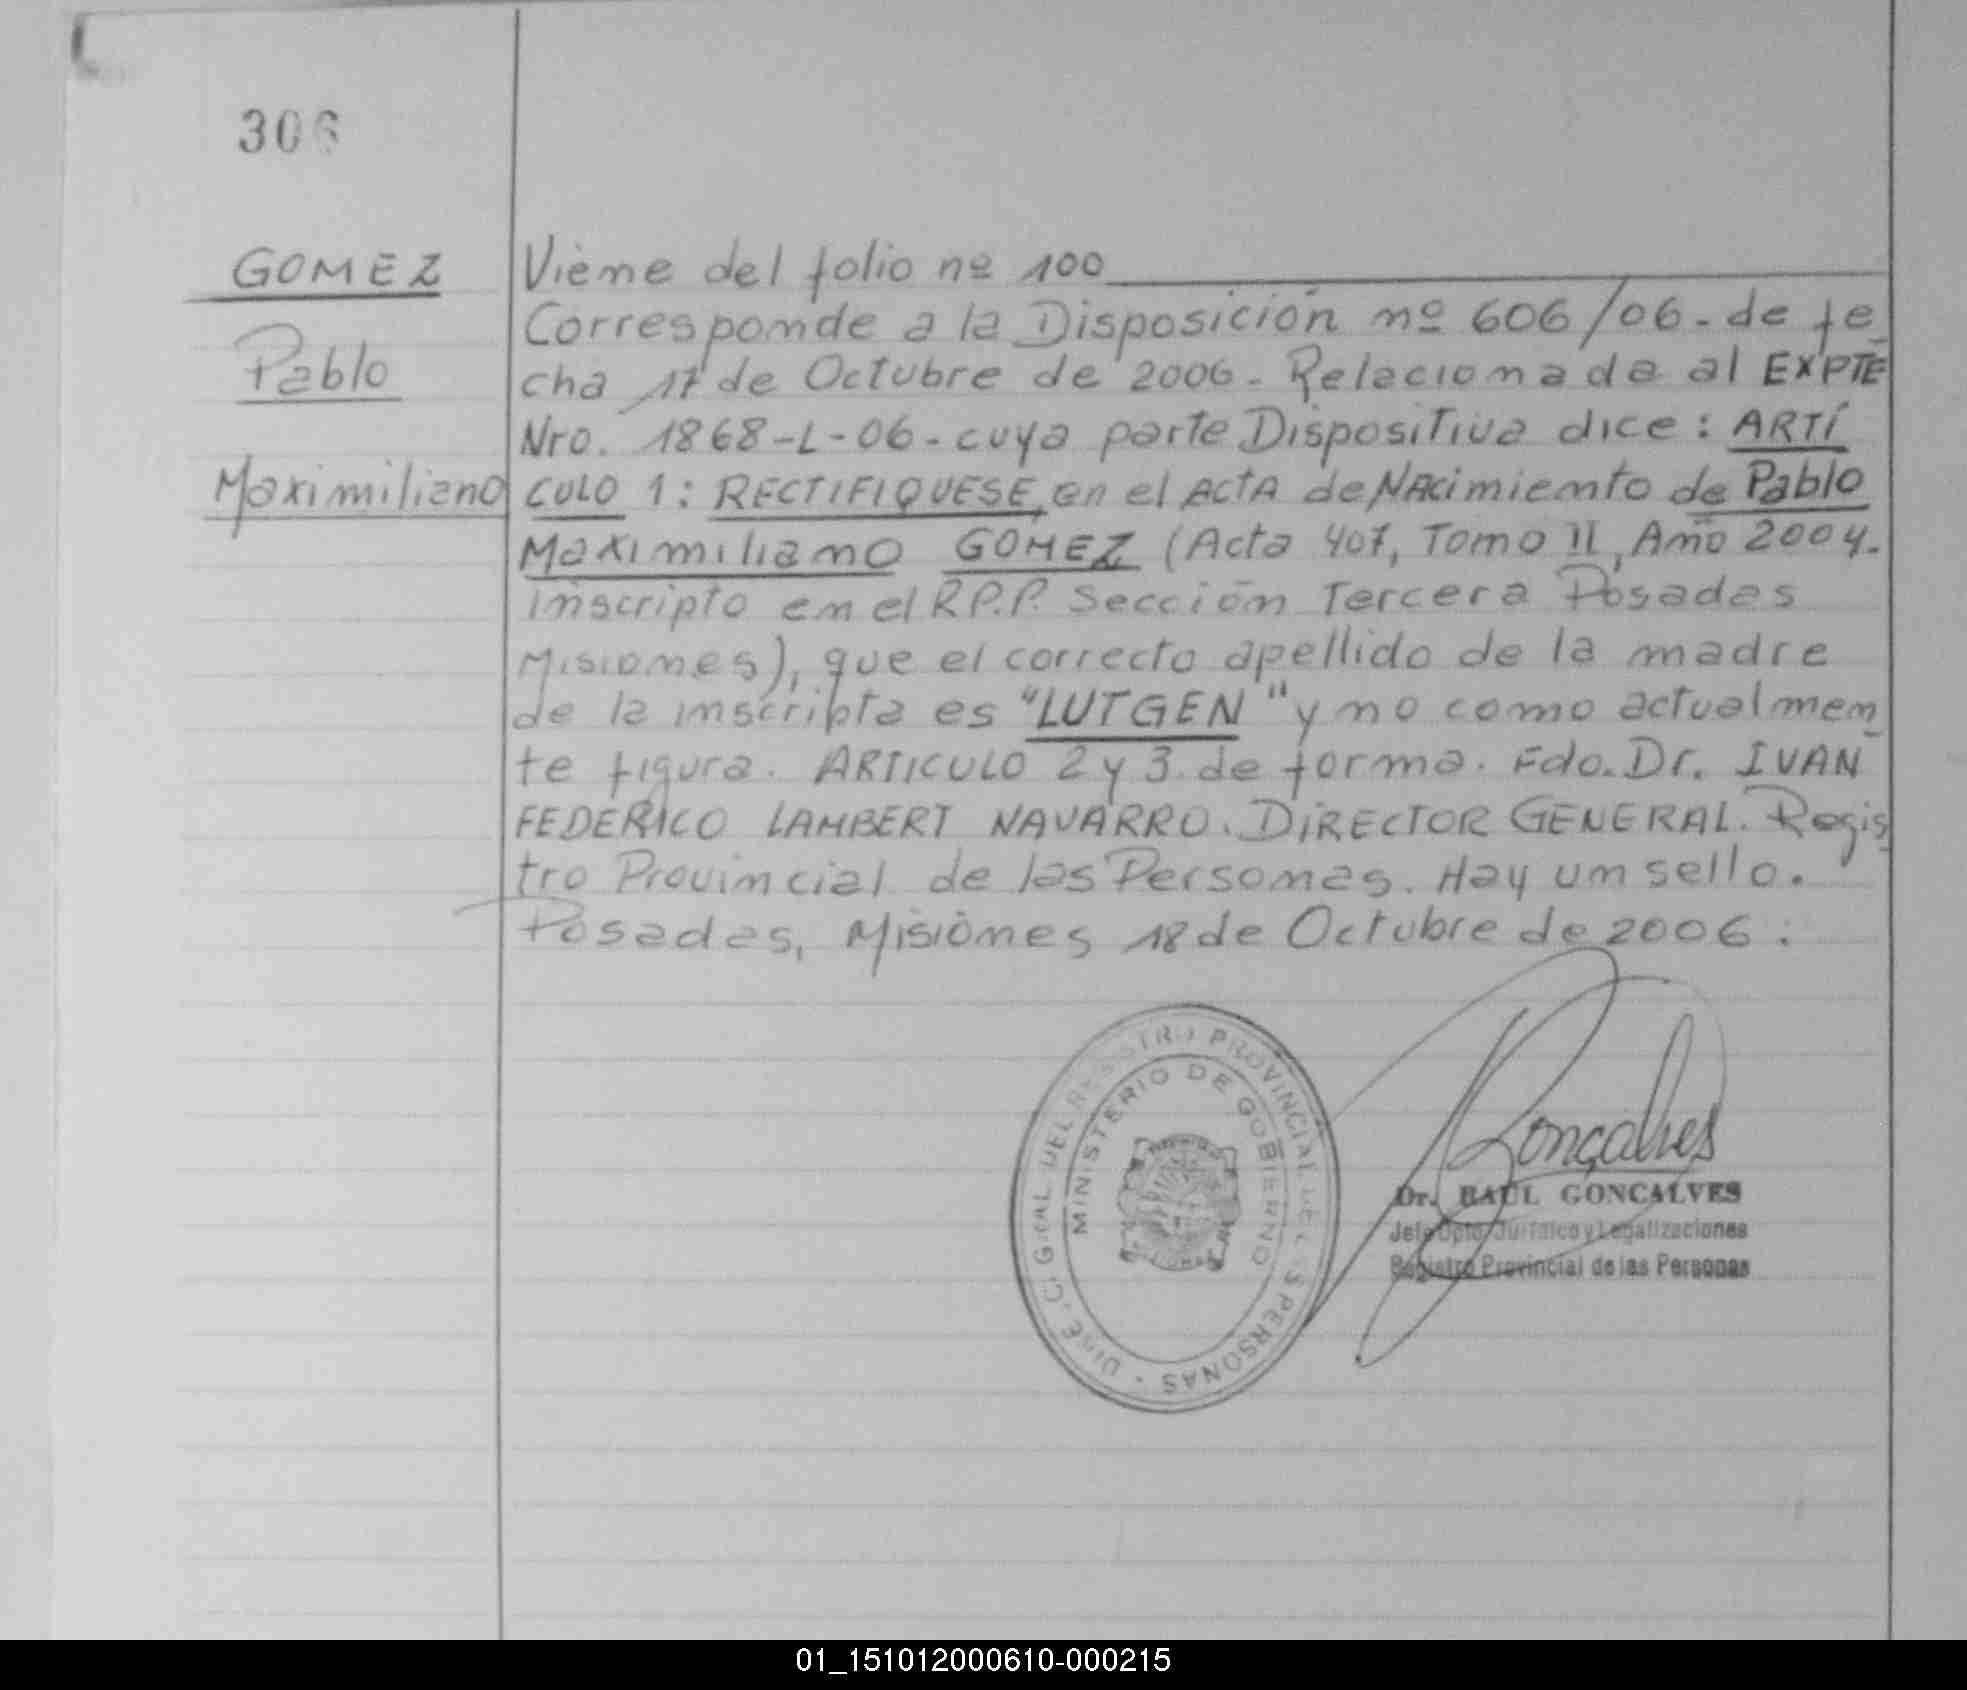 306
GOMEZ
Pablo
Maximiliano
Viene del folio nº 100
Corresponde a la Disposición nº 606/06.- de fe
cha 17 de Octubre de 2006.- Relacionada al EXPTE
Nro. 1868-L-06.- cuya parte Dispositiva dice: ARTÍ
CULO 1: RECTIFIQUESE, en el ACTA de NAcimiento de Pablo
Maximiliano GOMEZ (Acta 407, Tomo II, Año 2004.
inscripto en el R.P.P. Sección Tercera Posadas
Misiones), que el correcto apellido de la madre
de la inscripta es "LUTGEN" y no como actualmen
te figura. ARTICULO 2 y 3 de forma. Fdo. Dr. IVAN
FEDERICO LAMBERT NAVARRO. DIRECTOR GENERAL. Regis
tro Provincial de las Personas. Hay un sello.
Posadas, Misiones 18 de Octubre de 2006.
MINISTERIO DE GOBIERNO
Gonçalves
Dr. RAUL GONCALVES
Jefe Dpto. Jurídico y Legalizaciones
Registro Provincial de las Personas
01_151012000610-000215